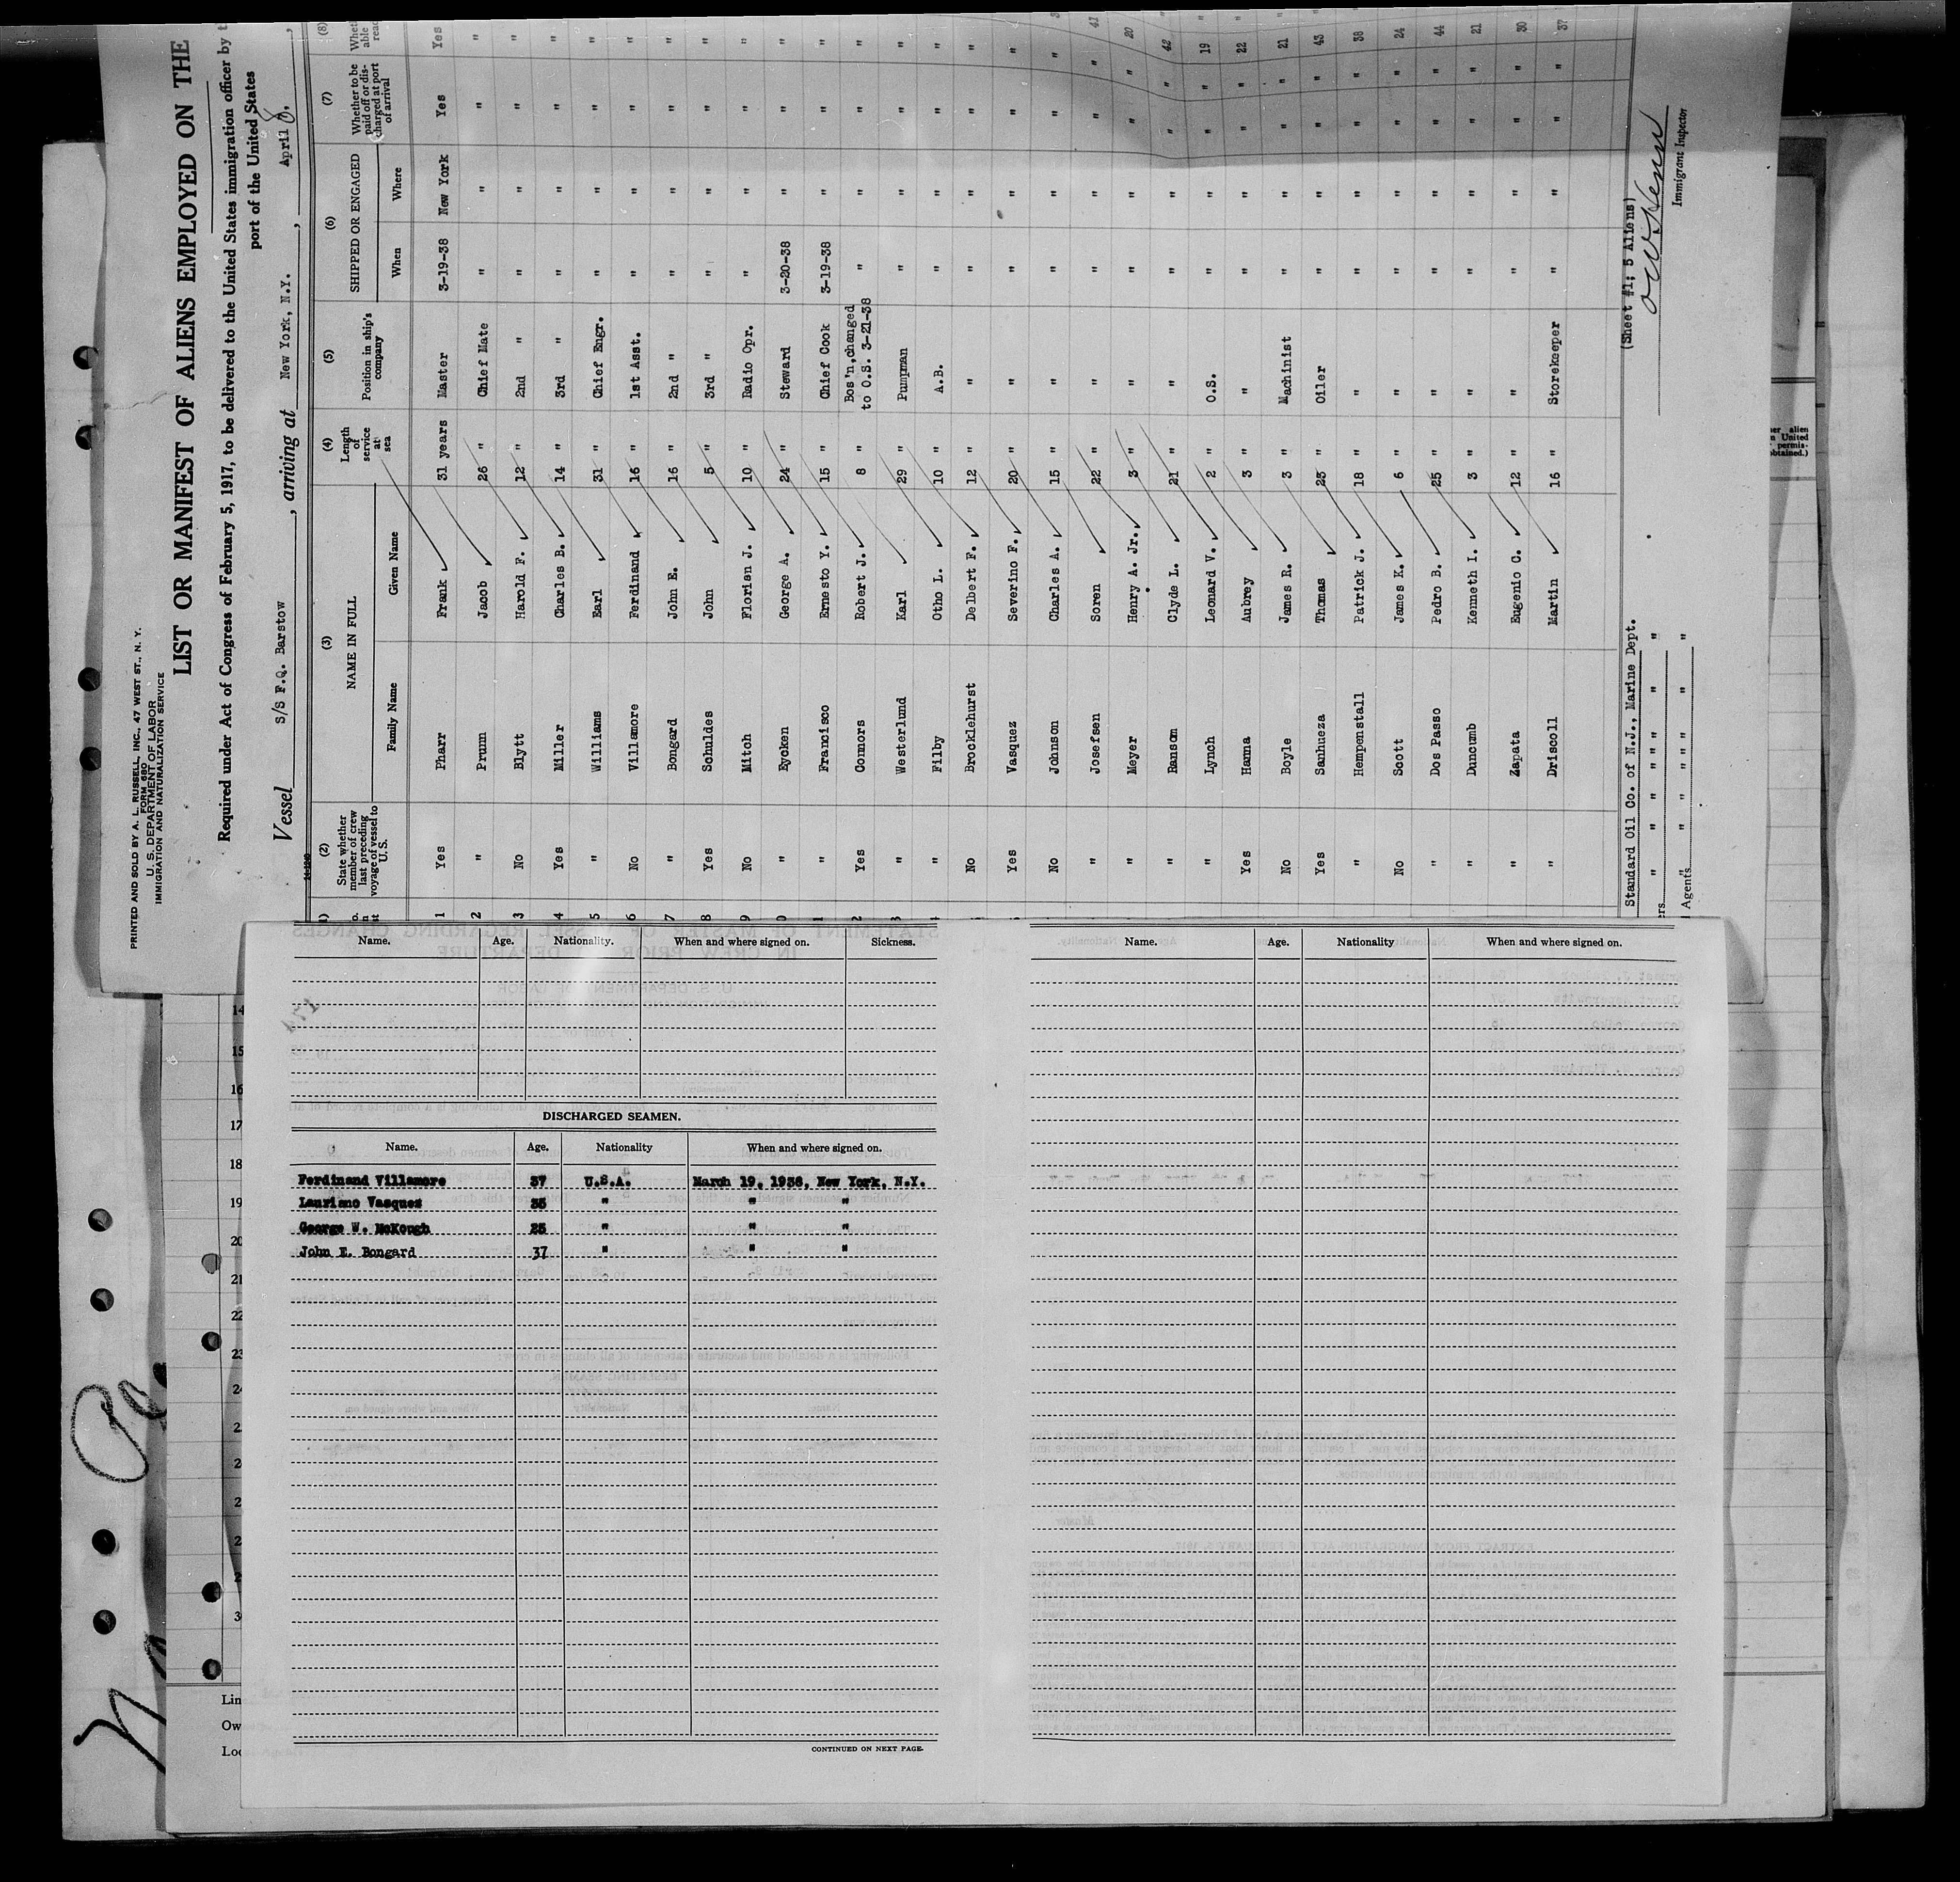 PRINTED AND SOLD BY A. L. RUSSELL, INC., 47 WEST ST., N. Y.
FORM 680
U. S. DEPARTMENT OF LABOR
IMMIGRATION AND NATURALIZATION SERVICE
LIST OR MANIFEST OF ALIENS EMPLOYED ON THE
Required under Act of Congress of February 5, 1917, to be delivered to the United States immigration officer by
port of the United States
Vessel S/S F.Q. Barstow, arriving at New York, N.Y., April
(2) (3) (4) (5) (6) (7) (8)
State whether member of crew last preceding voyage of vessel to U. S. NAME IN FULL Family Name Given Name Length of service at sea Position in ship's company SHIPPED OR ENGAGED When Where Whether to be paid off or discharged at port of arrival
1 Yes Pharr Frank 31 years Master 3-19-38 New York Yes Yes
2 " Prum Jacob 26 " Chief Mate " " " "
3 No Blytt Harold F. 12 " 2nd " " " " "
4 Yes Miller Charles B. 14 " 3rd " " " " "
5 " Williams Earl 31 " Chief Engr. " " " "
6 No Villamore Ferdinand 16 " 1st Asst. " " " "
7 " Bongard John E. 16 " 2nd " " " " "
8 Yes Schuldes John 5 " 3rd " " " " "
9 No Mitch Florian J. 10 " Radio Opr. " " " "
0 " Eycken George A. 24 " Steward 3-20-38 " " "
1 " Francisco Ernesto Y. 15 " Chief Cook 3-19-38 " " "
2 Yes Connors Robert J. 8 " Bos'n, changed to O.S. 3-21-38 " " " "
3 " Westerlund Karl 29 " Pumpman " " " "
4 " Filby Otho L. 10 " A.B. " " " "
No Brocklehurst Delbert F. 12 " " " " " "
Yes Vasquez Severino F. 20 " " " " " "
No Johnson Charles A. 15 " " " " " "
" Josefsen Soren 22 " " " " " " 41
" Meyer Henry A. Jr. 3 " " " " " " 20
" Ransom Clyde L. 21 " " " " " " 42
" Lynch Leonard V. 2 " O.S. " " " " 19
Yes Hanna Aubrey 3 " " " " " " 22
No Boyle James R. 3 " Machinist " " " " 21
Yes Sanhueza Thomas 23 " Oiler " " " " 43
" Hempenstall Patrick J. 18 " " " " " " 38
No Scott James K. 6 " " " " " " 24
" Dos Passo Pedro B. 25 " " " " " " 44
" Duncumb Kenneth I. 3 " " " " " " 21
" Zapata Eugenio C. 12 " " " " " " 30
" Driscoll Martin 16 " Storekeeper " " " " 37
Standard Oil Co. of N.J., Marine Dept. (Sheet #1; 5 Aliens)
" " " " " "
Agents " " " " " "
Immigrant Inspector
Name. Age. Nationality. When and where signed on. Sickness.
DISCHARGED SEAMEN.
Name. Age. Nationality When and where signed on.
Ferdinand Villamore 37 U.S.A. March 19, 1938, New York, N.Y.
Lauriano Vasquez 35 " " "
George W. McKough 25 " " "
John E. Bongard 37 " " "
CONTINUED ON NEXT PAGE.
Name. Age. Nationality When and where signed on.
14
15
16
17
18
19
20
21
22
23
Lin
Ow
Loc